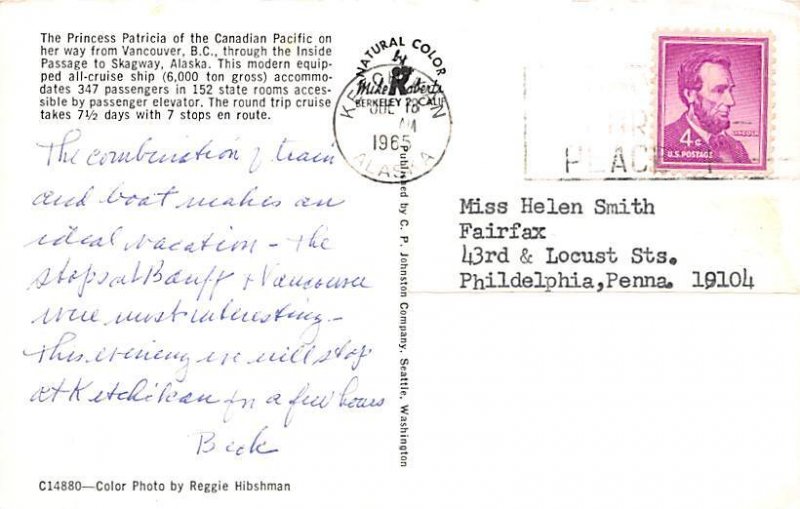 The Princess Patricia of the Canadian Pacific on
her way from Vancouver, B.C., through the Inside
Passage to Skagway, Alaska. This modern equip-
ped all-cruise ship (6,000 ton gross) accommo-
dates 347 passengers in 152 state rooms acces-
sible by passenger elevator. The round trip cruise
takes 7½ days with 7 stops en route.
The combination of train
and boat makes an
ideal vacation - the
stops at Banff + Vancouver
were most interesting -
This evening we will stop
at Ketchikan for a few hours
C14880—Color Photo by Reggie Hibshman
NATURAL COLOR
by
Mike Roberts
BERKELEY 2, CALIF
1965
ALASKA
Published by C. P. Johnston Company, Seattle, Washington
4¢
LINCOLN
U.S. POSTAGE
Miss Helen Smith
Fairfax
43rd & Locust Sts.
Phildelphia,Penna. 19104